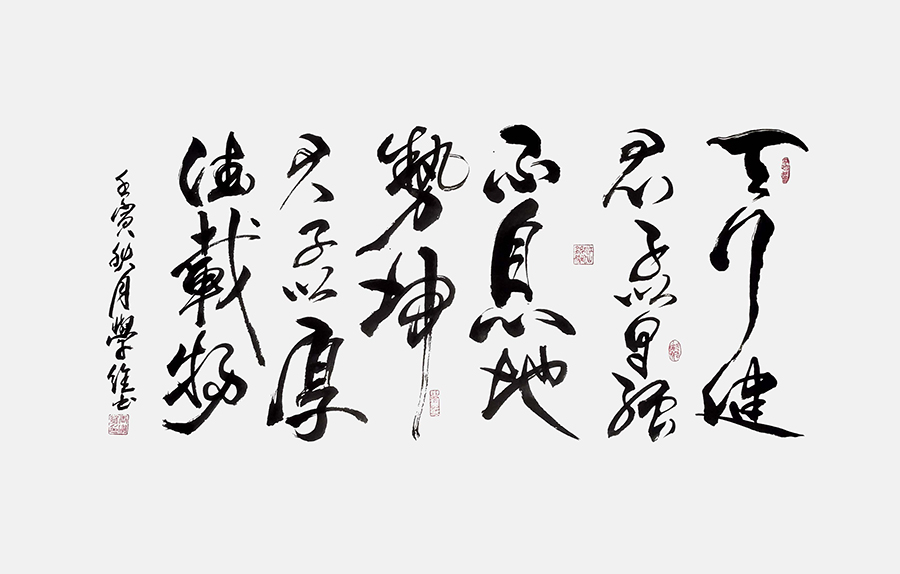 天行健
君子以自强
不息地
势坤
君子以厚
德載物
壬寅秋月學維书